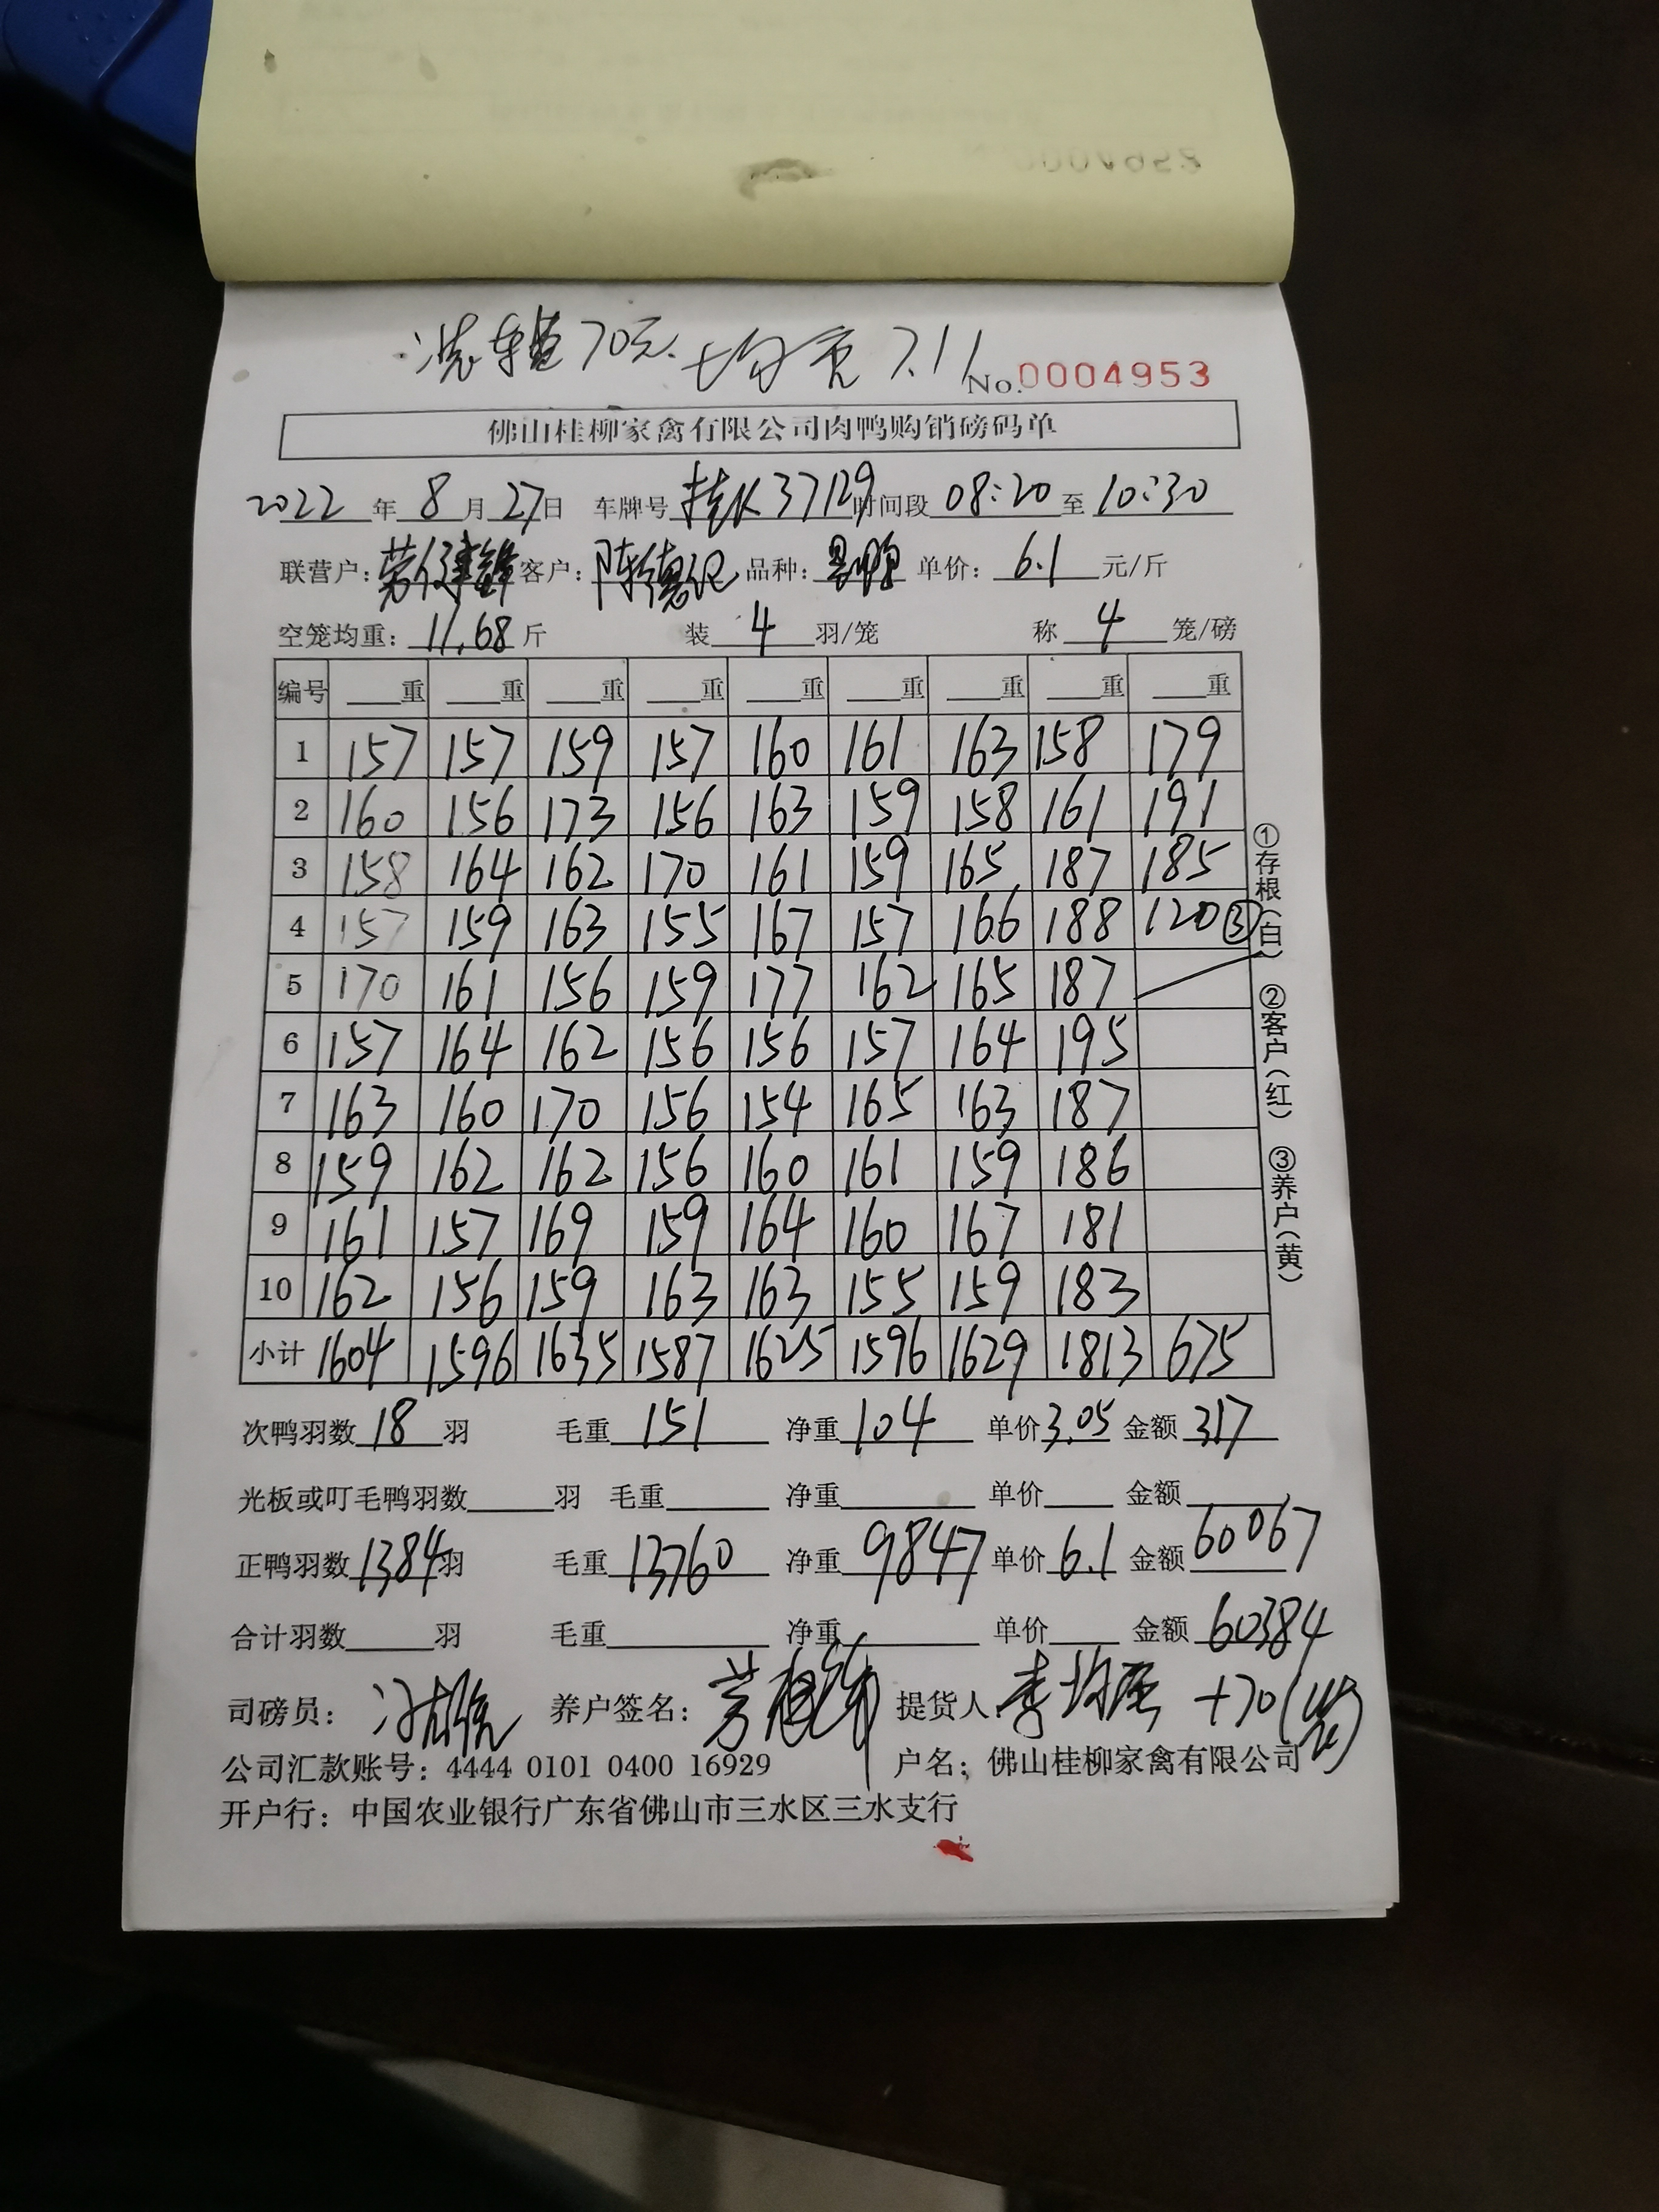 洗车费70元. 均重7.11
No.0004953
佛山桂柳家禽有限公司肉鸭购销磅码单
2022年8月27日 车牌号 桂K37129 时间段 08:20 至 10:30
联营户: 劳健锋 客户: 陈德记 品种: 单价: 6.1 元/斤
空笼均重: 11.68 斤 装 4 羽/笼 称 4 笼/磅
编号 重 重 重 重 重 重 重 重 重
1 157 157 159 157 160 161 163 158 179
2 160 156 173 156 163 159 158 161 191
3 158 164 162 170 161 159 165 187 185
4 157 159 163 155 167 157 166 188 120③
5 170 161 156 159 177 162 165 187
6 157 164 162 156 156 157 164 195
7 163 160 170 156 154 165 163 187
8 159 162 162 156 160 161 159 186
9 161 157 169 159 164 160 167 181
10 162 156 159 163 163 155 159 183
小计 1604 1596 1635 1587 1625 1596 1629 1813 675
①存根(白) ②客户(红) ③养户(黄)
次鸭羽数 18 羽 毛重 151 净重 104 单价 3.05 金额 317
光板或叮毛鸭羽数 羽 毛重 净重 单价 金额
正鸭羽数 1384 羽 毛重 13760 净重 9847 单价 6.1 金额 60067
合计羽数 羽 毛重 净重 单价 金额 60384
司磅员: 养户签名: 提货人 +70
公司汇款账号: 4444 0101 0400 16929 户名: 佛山桂柳家禽有限公司
开户行: 中国农业银行广东省佛山市三水区三水支行